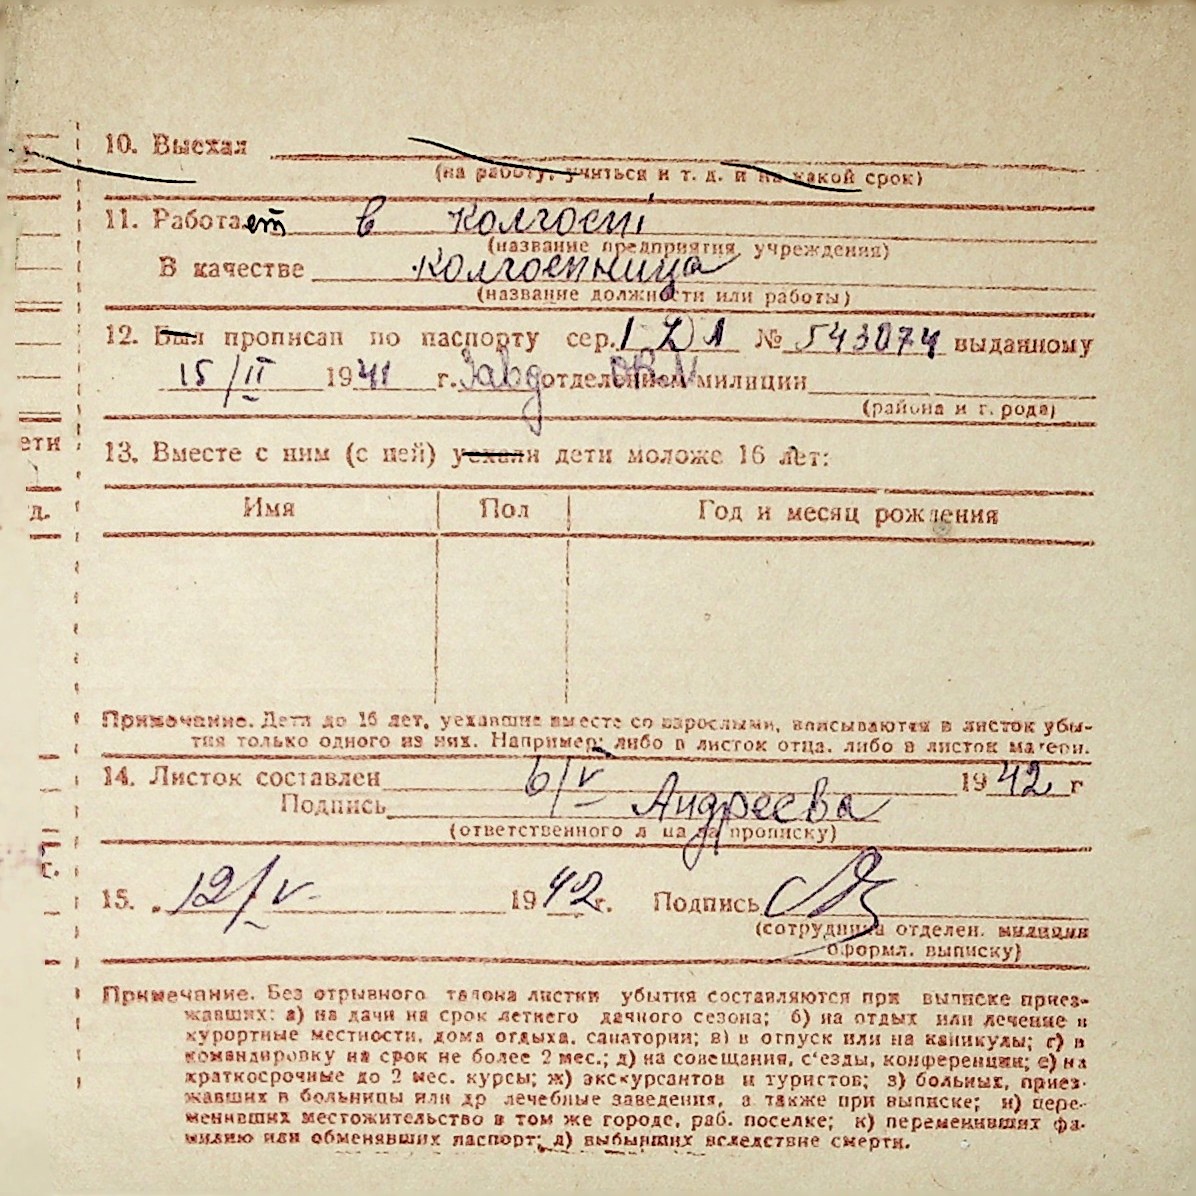 10. Выехал
(на работу, учиться и т. д. и на какой срок)
11. Работает в колгоспі
(название предприятия, учреждения)
В качестве колгоспница
(название должности или работы)
12. Был прописан по паспорту сер. № 543074 выданному
15/II 1941 г. отделением милиции
(района и города)
13. Вместе с ним (с ней) уехали дети моложе 16 лет:
Имя Пол Год и месяц рождения
ети
д.
Примечание. Дети до 16 лет, уехавшие вместе со взрослыми, вписываются в листок убы-
тия только одного из них. Например: либо в листок отца, либо в листок матери.
14. Листок составлен 6/V 1942 г
Подпись Андреева
(ответственного лица за прописку)
г.
15. 12/V 1942 г. Подпись
(сотрудника отделен. милиции
оформл. выписку)
Примечание. Без отрывного талона листки убытия составляются при выписке приез-
жавших: а) на дачи на срок летнего дачного сезона; б) на отдых или лечение в
курортные местности, дома отдыха, санатории; в) в отпуск или на каникулы; г) в
командировку на срок не более 2 мес.; д) на совещания, с'езды, конференции; е) на
краткосрочные до 2 мес. курсы; ж) экскурсантов и туристов; з) больных, приез-
жавших в больницы или др лечебные заведения, а также при выписке; и) пере-
менивших местожительство в том же городе, раб. поселке; к) переменивших фа-
милию или обменявших паспорт; л) выбывших вследствие смерти.